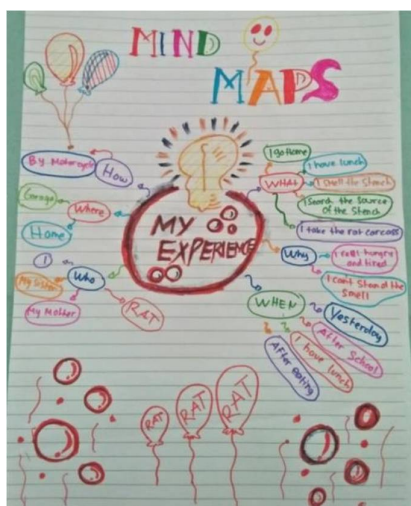 MIND
MAPS
MY
EXPERIENCE
How
By Motorcycle
Where
Garage
Home
Who
I
My Sister
My Mother
RAT
WHAT
I go Home
I have lunch
I smell the Stench
I Search the Source
of the Stench
I take the rat carcass
Why
I feel hungry
and tired
I can't Stand the
smell
WHEN
Yesterday
After School
I have lunch
After eating
RAT
RAT
RAT